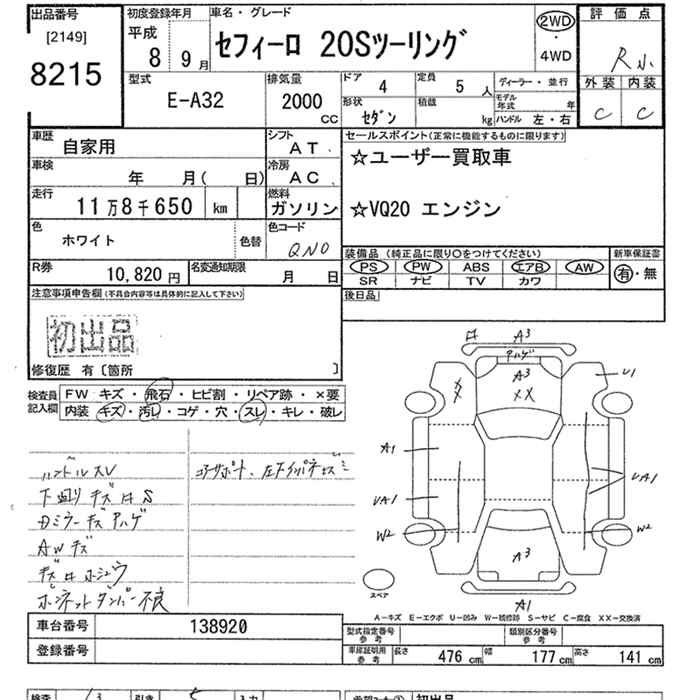 出品番号 初度登録年月 車名・グレード 評価点
[2149] 平成 8 9月 セフィーロ 20Sツーリング 2WD・4WD R
8215
型式 排気量 ドア 4 定員 5人 ディーラー・並行 外装 内装
E-A32 2000cc 形状 セダン 積載 kg モデル年式 年 ハンドル 左・右 C C
車歴 自家用 シフト AT セールスポイント(正常に機能するものに限ります)
車検 年 月( 日) 冷房 AC ☆ユーザー買取車
走行 11万8千650 km 燃料 ガソリン ☆VQ20 エンジン
色 ホワイト 色替 色コード QN0
装備品(純正品に限り○をつけてください) 新車保証書
R券 10,820円 名変通知期限 月 日 PS PW ABS エアB AW 有・無
SR ナビ TV カワ
注意事項申告欄(不具合内容等は具体的に記入して下さい) 後日品
初出品
修復歴 有〔箇所 〕
検査員記入欄 FW キズ・飛石・ヒビ割・リペア跡・×要
内装 キズ・汚レ・コゲ・穴・スレ・キレ・破レ
ハンドルスレ
下廻りキズサS
Dミラーキズアハゲ
AWキズ
ボンネットダンパー不良
A3
アハゲ
A3
XX
U1
A1
UA1
UA1
W2
W2
A3
スペア
A1
A-キズ E-エクボ U-凹み W-補修跡 S-サビ C-腐食 XX-交換済
車台番号 138920 型式指定番号 参考 類別区分番号 参考
登録番号 車庫証明用 参考 長さ 476cm 幅 177cm 高さ 141cm
初出品